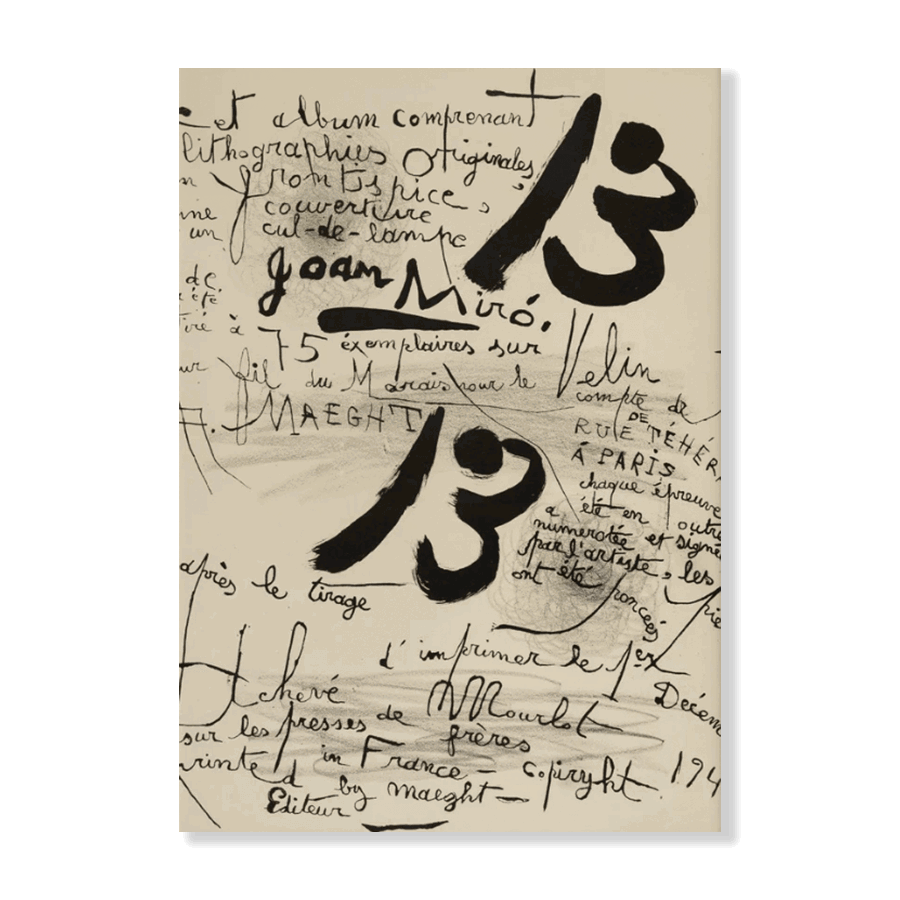 et album comprenant 13
lithographies Originales,
frontispice,
ne couverture
un cul-de-lampe
Joan Miró.
de
été
tiré à 75 éxemplaires sur Velin
ur fil du Marais pour le compte de
A. MAEGHT 13 RUE DE TÉHÉR
Á PARIS
chaque épreuve
a été en outre
numerotée et signé
par l'artiste, les pie
ont été poncées
après le tirage
d'imprimer le 1er
Achevé Décem
sur les presses de Mourlot
frères
in France - copiryht. 194
rinted by maeght -
Editeur